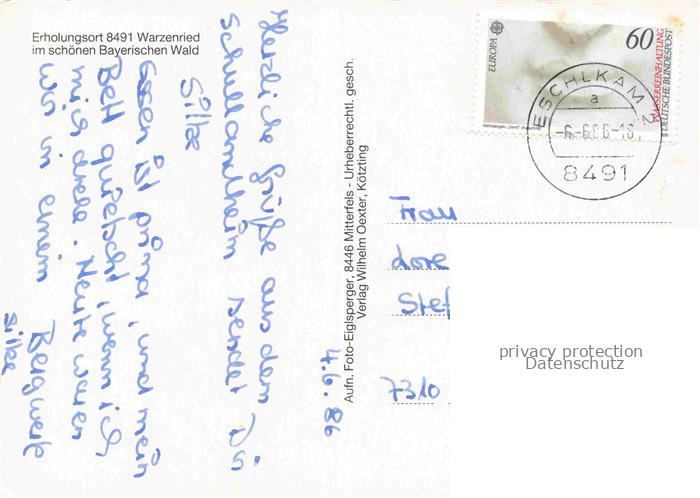 Erholungsort 8491 Warzenried
im schönen Bayerischen Wald
EUROPA
60
WASSERREINHALTUNG
DEUTSCHE BUNDESPOST
ESCHLKAM 2
a
-6.-6.86-18
8491
4.6.86
Herzliche Grüße aus dem
Schullandheim sendet Dir
Silke
Essen ist prima, und mein
Bett quietscht, wenn ich
mich drehe. Heute waren
wir in einem Bergwerk
Silke
Aufn. Foto-Eiglsperger, 8446 Mitterfels - Urheberrechtl. gesch.
Verlag Wilhelm Oexter, Kötzting
Frau
Lore
Stef
7310
privacy protection
Datenschutz